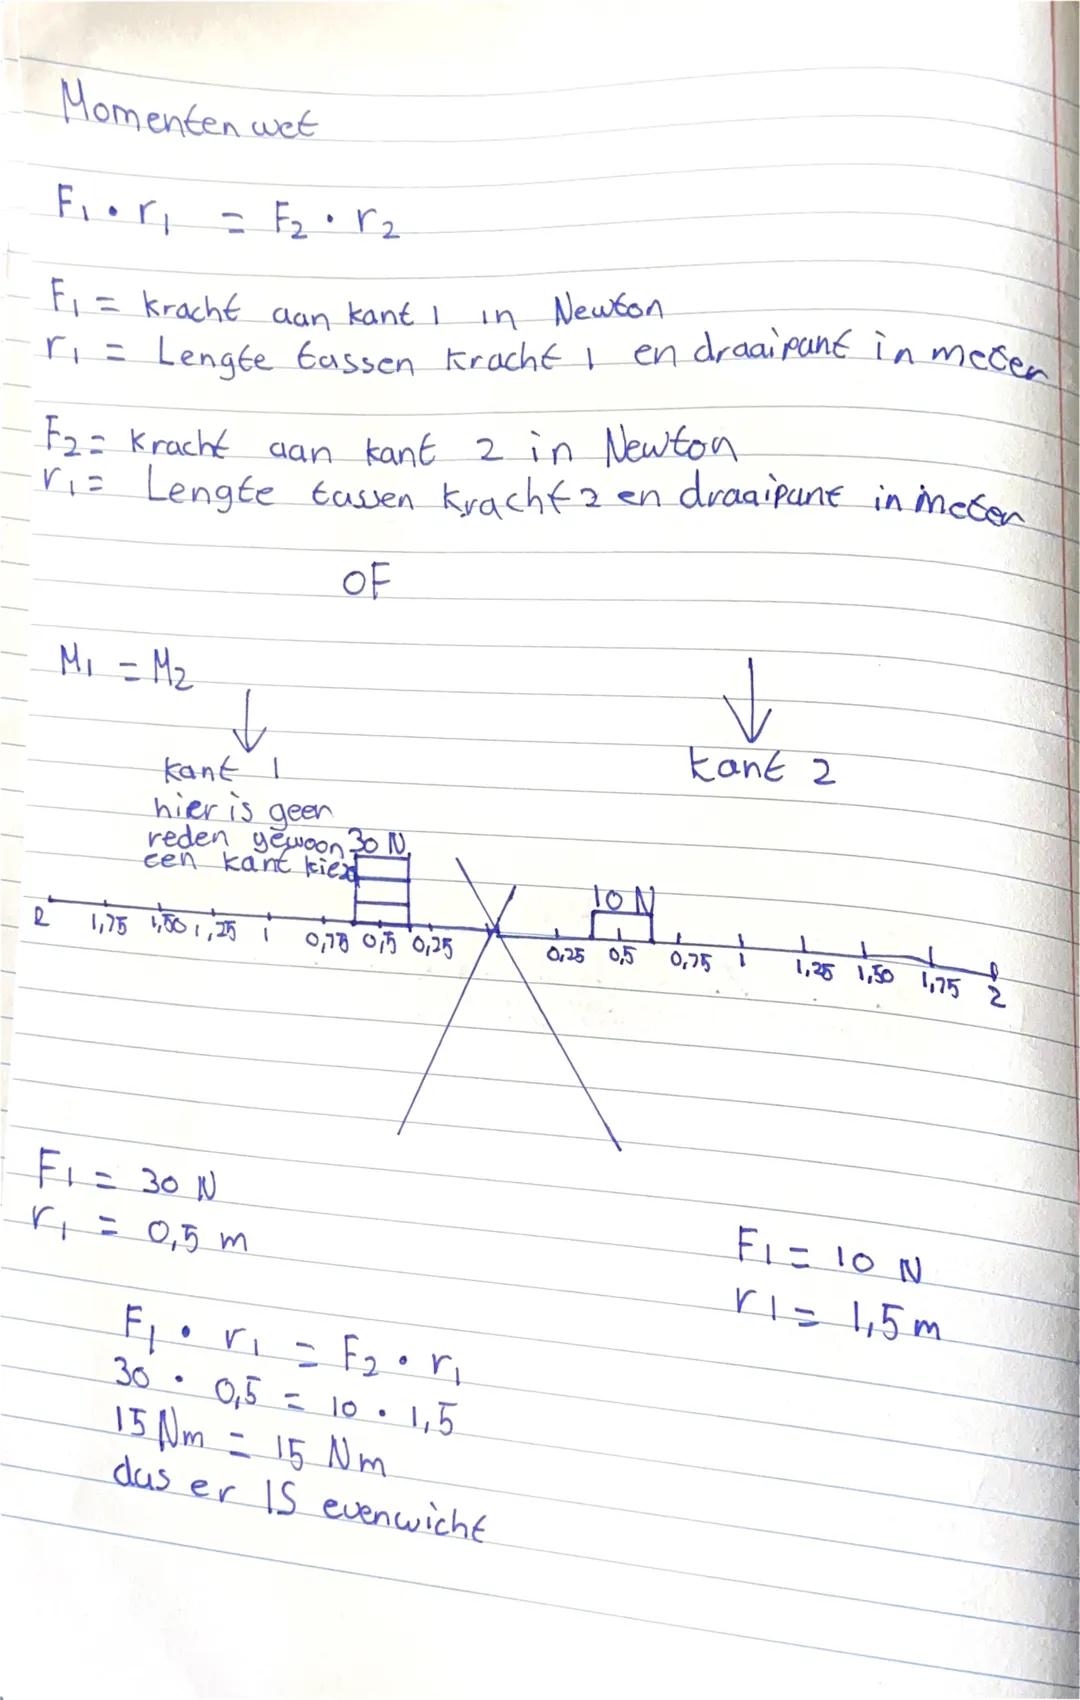 Momentenwet
F1 • r1 = F2 • r2
F1 = kracht aan kant 1 in Newton
r1 = Lengte tussen kracht 1 en draaipunt in meter
F2 = kracht aan kant 2 in Newton
r1 = Lengte tussen kracht 2 en draaipunt in meter
OF
M1 = M2
kant 1
kant 2
hier is geen
reden gewoon
een kant kiezen
30 N
10 N
2 1,75 1,50 1,25 1 0,75 0,5 0,25
0,25 0,5 0,75 1 1,25 1,50 1,75 2
F1 = 30 N
r1 = 0,5 m
F1 = 10 N
r1 = 1,5 m
F1 • r1 = F2 • r1
30 • 0,5 = 10 • 1,5
15 Nm = 15 Nm
dus er IS evenwicht